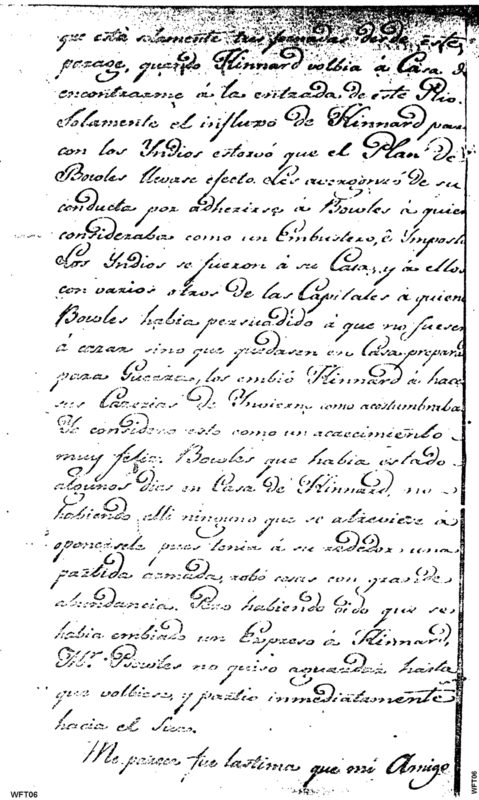 que está solamente tres jornadas desde este
parage, quando Kinnard volbia á Casa de
encontrarme á la entrada de este Rio.
Solamente el influxo de Kinnard para
con los Yndios estorvó que el Plan de
Bowles llevase efecto. Les avergonzó de su
conducta por adherirse á Bowles á quien
consideraba como un Embustero, é Impost
Los Yndios se fueron á su Casa, y á ellos
con varios otros de las Capitales á quien
Bowles habia persuadido á que no fuesen
á cazar sino que quedasen en Casa prepara
para Guerra, los embió Kinnard á hace
sus Cacerias de Ynvierno como acostumbraba
Yo considero esto como un acaecimiento
muy feliz. Bowles que habia estado
algunos dias en Casa de Kinnard, no
habiendo alli ninguno que se atreviese á
oponersele pues tenia á su rededor una
partida armada, robó cosas con grande
abundancia. Pero habiendo oido que se
habia embiado un Expreso á Kinnard,
Mr. Bowles no quiso aguardar hasta
que volbiese, y partio inmediatamente
hacia el Suro.
Me parece fue lastima que mi Amigo
WFT06
WFT06